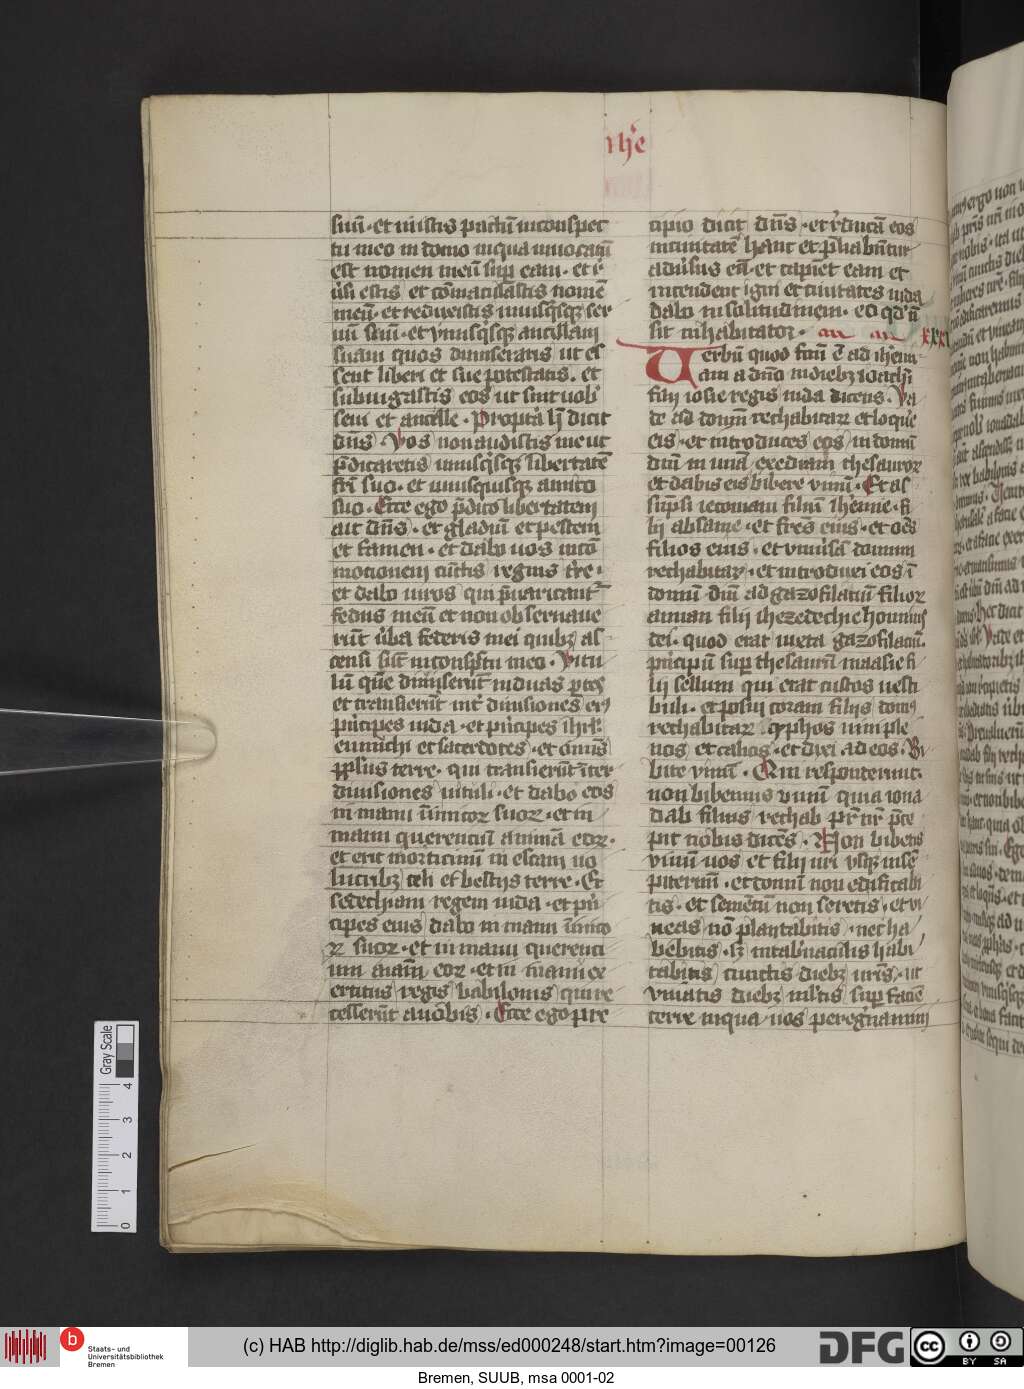 ihe
suū · et inistis pactū inconspec
tu meo in domo inqua inuocatū
est nomen meū sup eam · et r
ūsi estis et cōmaculastis nomē
meū · et reduxistis unusqsqꝫ ser
uū suū · et vnusqsqꝫ ancillam
suam quos dimiseratis ut es
sent liberi et sue potestatis . et
subiugastis eos ut sint uob
serui et ancille · Propt h dicit
dn̄s · Vos non audistis me ut
p̄dicaretis unusqsqꝫ libertatē
fri suo · et unusquisqꝫ amico
suo · Ecce ego p̄dico libertatem
ait dn̄s · et gladiū et pestem
et famen · et dabo uos incō
motionem cūctis regnis tre ·
et dabo uiros qui p̄uaricant
fedus meū et non obseruaue
rūt ūba federis mei quibꝫ as
censi sūt inconspctu meo · Vitu
lū quē diuiserūt induas ptes
et transierūt int diuisiones eiꝰ
pncipes iuda · et pncipes ihrlm
eunuchi et sacerdotes · et omīs
pplus terre · qui transierūt īter
diuisiones uituli · et dabo eos
in manu inimicoꝝ suoꝝ · et in
manu querenciū animā eoꝝ ·
et erit morticinū in escam uo
lucribꝫ celi et bestijs terre · Et
sedechiam regem iuda · et pn
cipes eius dabo in manu inimico
ꝝ suoꝝ · et in manu querenci
um aīam eoꝝ · et in manu ex
ercitus regis babilonis qui re
cesserūt auobis · Ecce ego pre
cipio dicit dn̄s · et rducā eos
inciuitatē hanc et plīabūtur
adūsus eā · et capient eam et
incendent igni et ciuitates iuda
dabo insolitudinem · eo qd nō
sit inhabitator · xxxv
Verbū quod fcm̄ ē ad iherem
iam a dn̄o indiebꝫ ioachī
filij iosie regis iuda dicens · Va
de ad domū rechabitaꝝ et loque
eis · et introduces eos in domū
dn̄i in unā exedram thesauroꝝ
et dabis eis bibere vinū · Et as
sūpsi ieconiam filiū iheremie · fi
lij absanie · et fres eius · et oēs
filios eius · et vniuersā domum
rechabitaꝝ · et introduxi eos ī
domū dn̄i ad gazofilaciū filioꝝ
aman filij ihezedechie hominis
dei · quod erat iuxta gazofilaciū
principū sup thesaurū maasie fi
lij sellum qui erat custos uesti
buli · et posui coram filijs domꝰ
rechabitaꝝ cyphos uini ple
nos et calices · et dixi ad eos · Bi
bite vinū · Qui responderunt ·
non bibemus uinū quia iona
dab filius rechab pr nr pce
pit nobis dicēs · Non bibetis
vinū uos et filij uri vsqꝫ insē
piternū · et domū non edificabi
tis · et sementē non seretis · et vi
neas nō plantabitis · nec ha
bebitis · sꝫ intabnaculis habi
tabitis cunctis diebꝫ uris · ut
viuatis diebꝫ mltis sup faciē
terre inqua uos peregrinamini
Gray Scale
4
3
2
1
0
Staats- und
Universitätsbibliothek
Bremen
(c) HAB http://diglib.hab.de/mss/ed000248/start.htm?image=00126
DFG
cc
BY SA
Bremen, SUUB, msa 0001-02